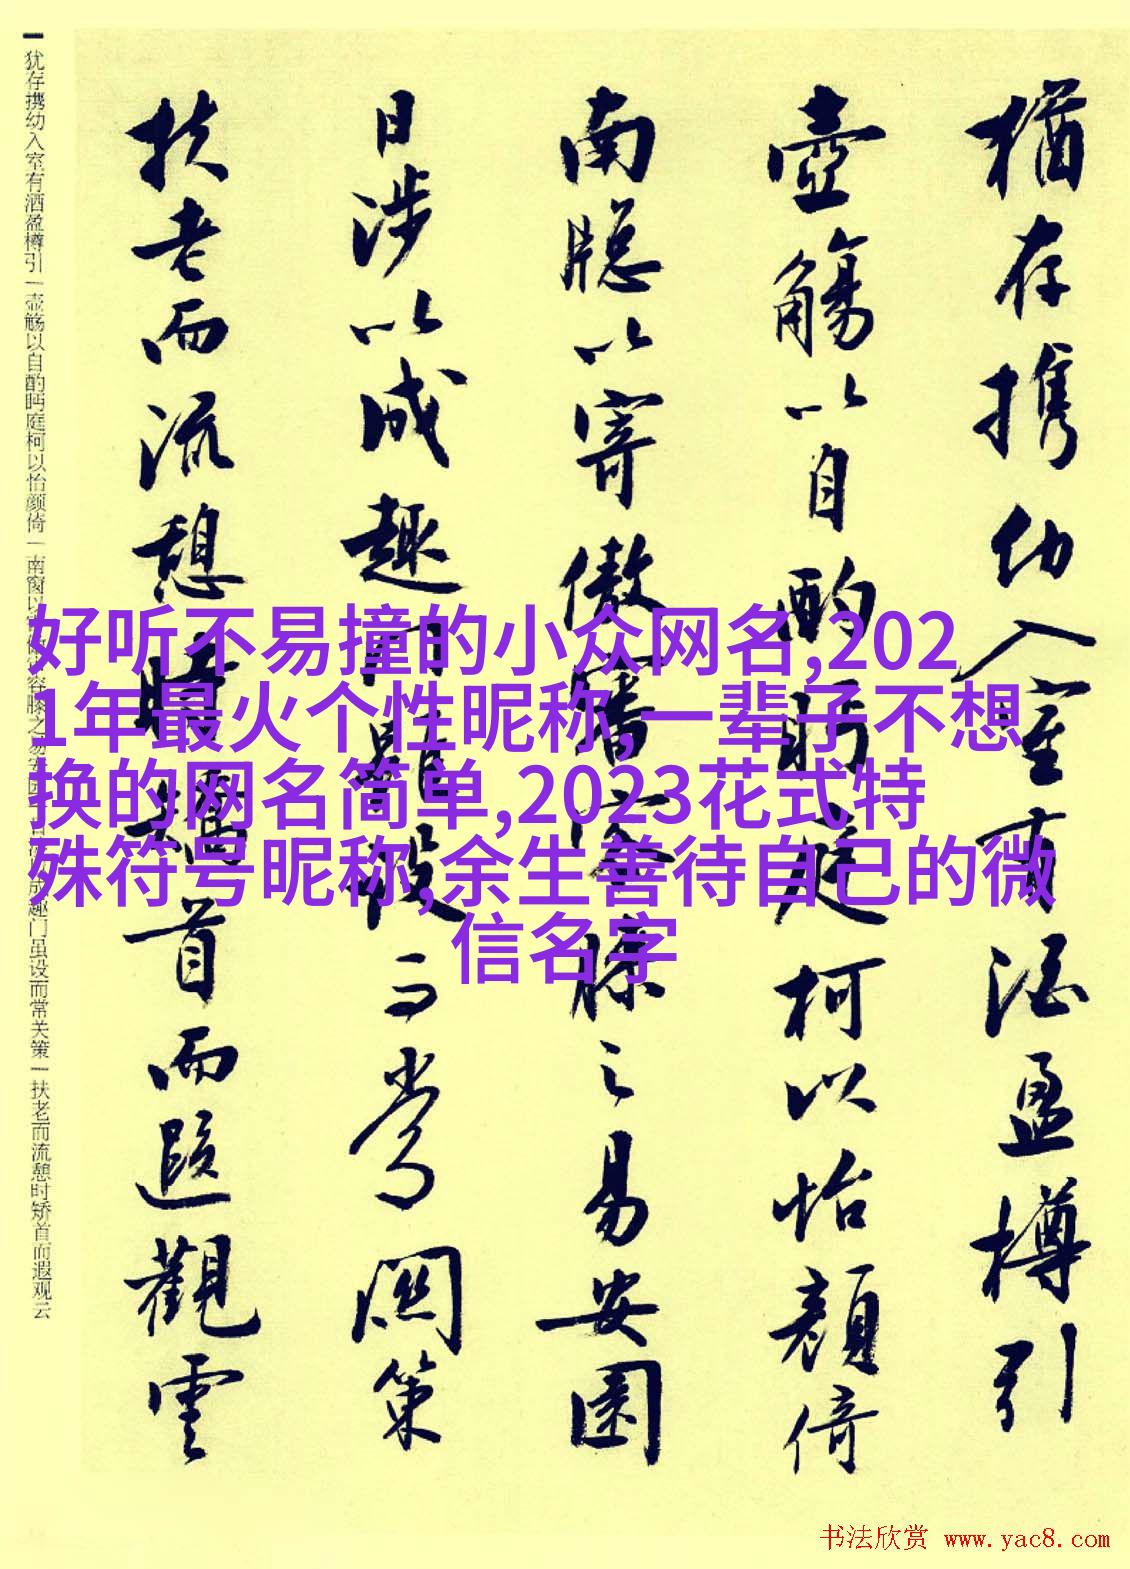 猶存携幼入室有酒盈樽引
壺觴以自酌眄庭柯以怡顏倚
南牕以寄傲審容膝之易安園
日涉以成趣門雖設而常関策
扶老而流憩時矯首而遐觀雲
犹存携幼入室有酒盈樽引｜壶觞以自酌眄庭柯以怡颜倚｜南窗以容膝之易安成趣门虽设而常关策｜扶老而流憩时矫首而遐观云
好听不易撞的小众网名,202
1年最火个性昵称,一辈子不想
换的网名简单,2023花式特
殊符号昵称,余生善待自己的微
信名字
书法欣赏 www.yac8.com